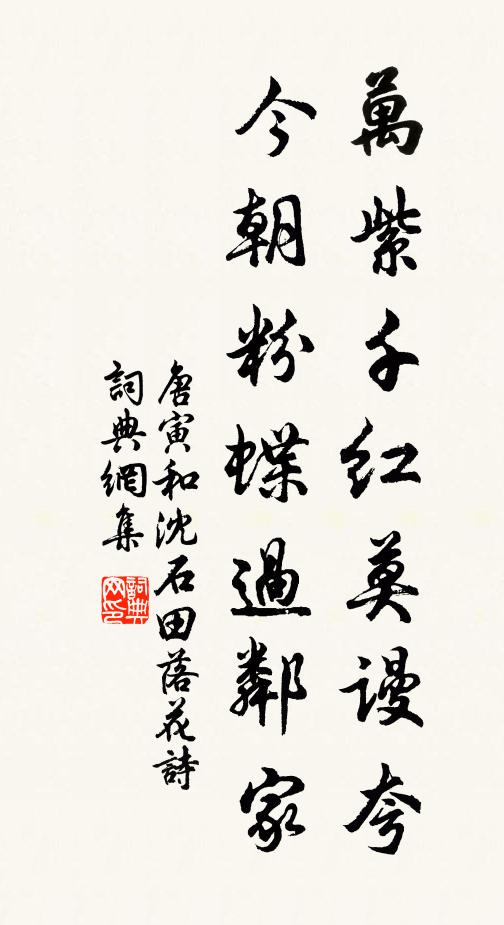 萬紫千紅莫謾夸
今朝粉蝶過鄰家
唐寅和沈石田落花詩
詞典網集
詞典
网印